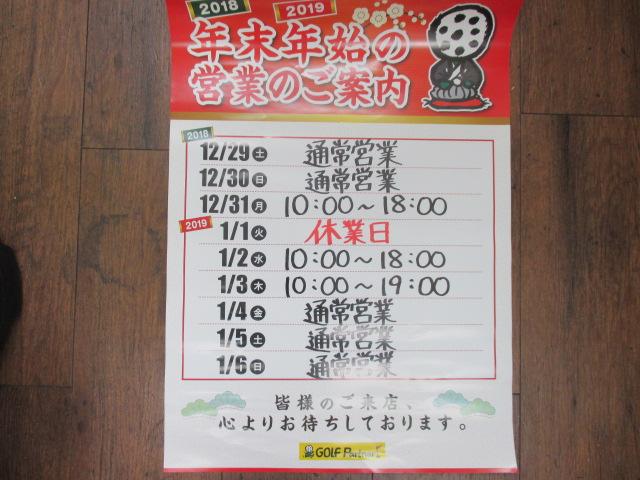 2018 2019
年末年始の
営業のご案内
2018
12/29 土 通常営業
12/30 日 通常営業
12/31 月 10:00～18:00
2019
1/1 火 休業日
1/2 水 10:00～18:00
1/3 木 10:00～19:00
1/4 金 通常営業
1/5 土 通常営業
1/6 日 通常営業
皆様のご来店、
心よりお待ちしております。
GOLF Partner